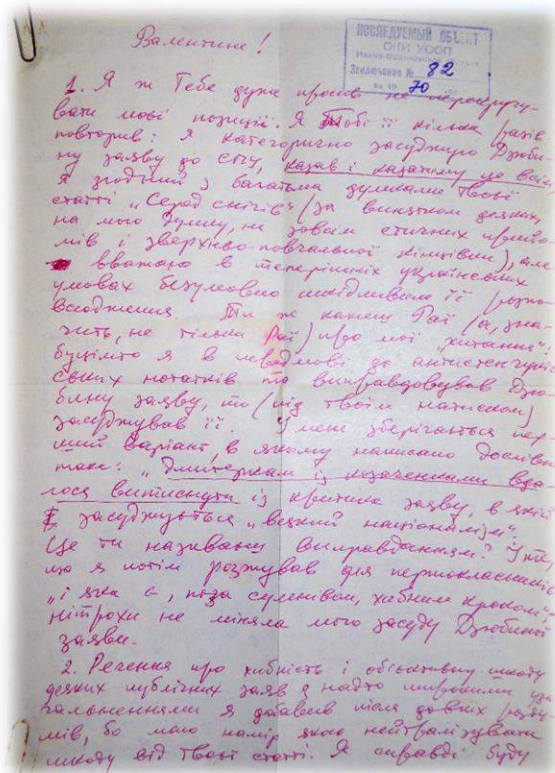 Валентине!
ПОСЛЕДУЕМЫЙ ОБЪЕКТ
ОКИ УООП
Заключение № 82
за 19 70
1. Я ж Тебе дуже просив не перекручу-
вати мої позиції. Я Тобі її кілька разів
повторив: я категорично засуджую Дзюби-
ну заяву до СПУ, казав і казатиму це всім.
Я згодний з багатьма думками твоєї
статті „Серед снігів" (за винятком деяких,
на мою думку, не зовсім етичних прийо-
мів і зверхньо-повчальної кінцівки), але
вважаю в теперішніх українських
умовах безумовно шкідливою її розпо-
всюдження. Ти ж кажеш Раї (а, зна-
чить, не тільки Раї) про мої „хитання".
буцімто я в передмові до
своїх нотатків то виправдовував Дзю-
бину заяву, то (під твоїм натиском)
засуджував її. У мене зберігається пер-
ший варіант, в якому написано дослівно
таке: „Дмитеркам із козаченками вда-
лося витиснути із критика заяву, в якій
засуджується „всякий націоналізм".
Це ти називаєш виправданням? І те,
що я потім розжував для першокласників
„і яка є, поза сумнівом, хибним кроком",
нітрохи не міняло мого засуду Дзюбиної
заяви.
2. Речення про хибність і об'єктивну шкоду
деяких публічних заяв з надто широкими уза-
гальненнями я добавив після довгих розду-
мів, бо мав намір якось нейтралізувати
шкоду від твоєї статті. Я справді буду